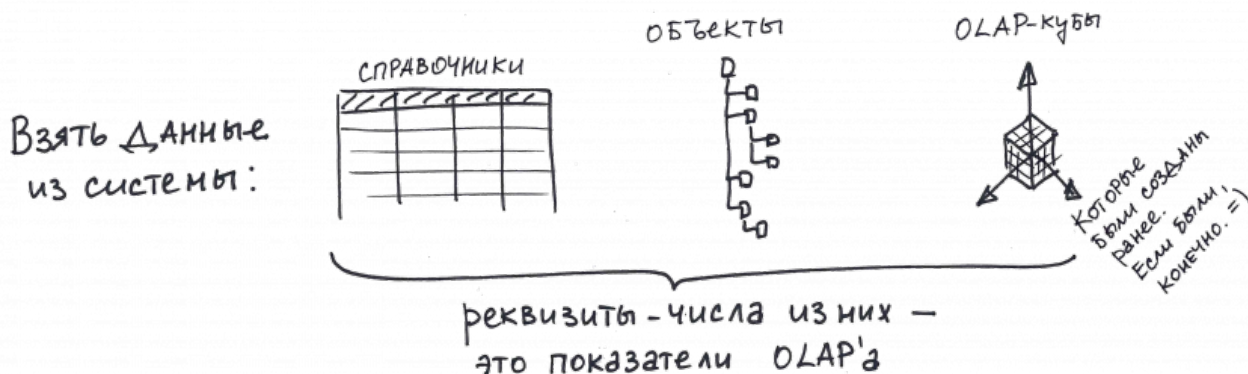 Взять данные
из системы:
СПРАВОЧНИКИ
ОБЪЕКТЫ
OLAP-КУБЫ
Которые
были созданы
ранее.
Если были,
конечно. =)
реквизиты-числа из них –
это показатели OLAP'а